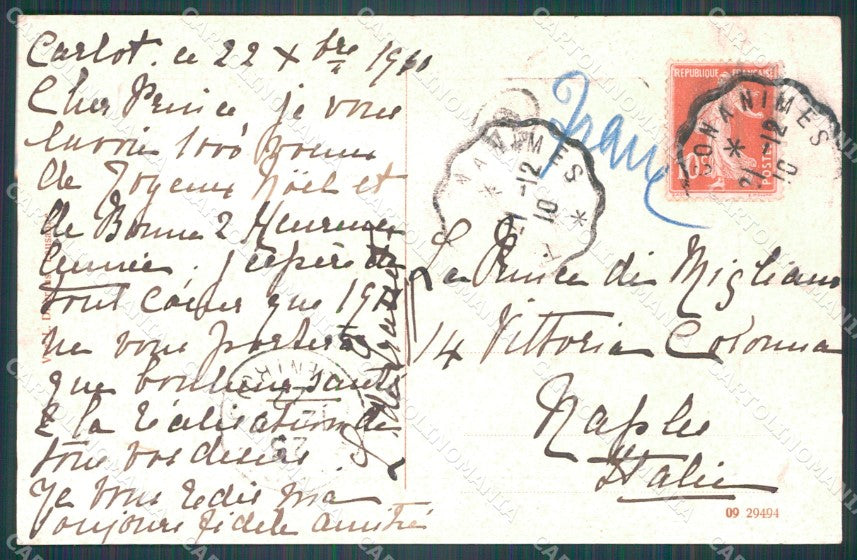 Carlot. ce 22 Xbre 1910
Cher Prince, je vous
envoie 1000 bonnes
de Joyeux Noël et
de Bonne & Heureuse
Année. J'espère de
tout coeur que 191
ne vous portera
que bonheur santé
& la réalisation de
tous vos désirs.
Je vous redis ma
toujours fidèle amitié
Le Prince di Migliano
14 Vittoria Colonna
Naples
Italie
France
REPUBLIQUE FRANÇAISE
10c
POSTES
NANIMES
21-12
10
ONANIMES
21-12
10
09 29494
CARTOLINOMANIA